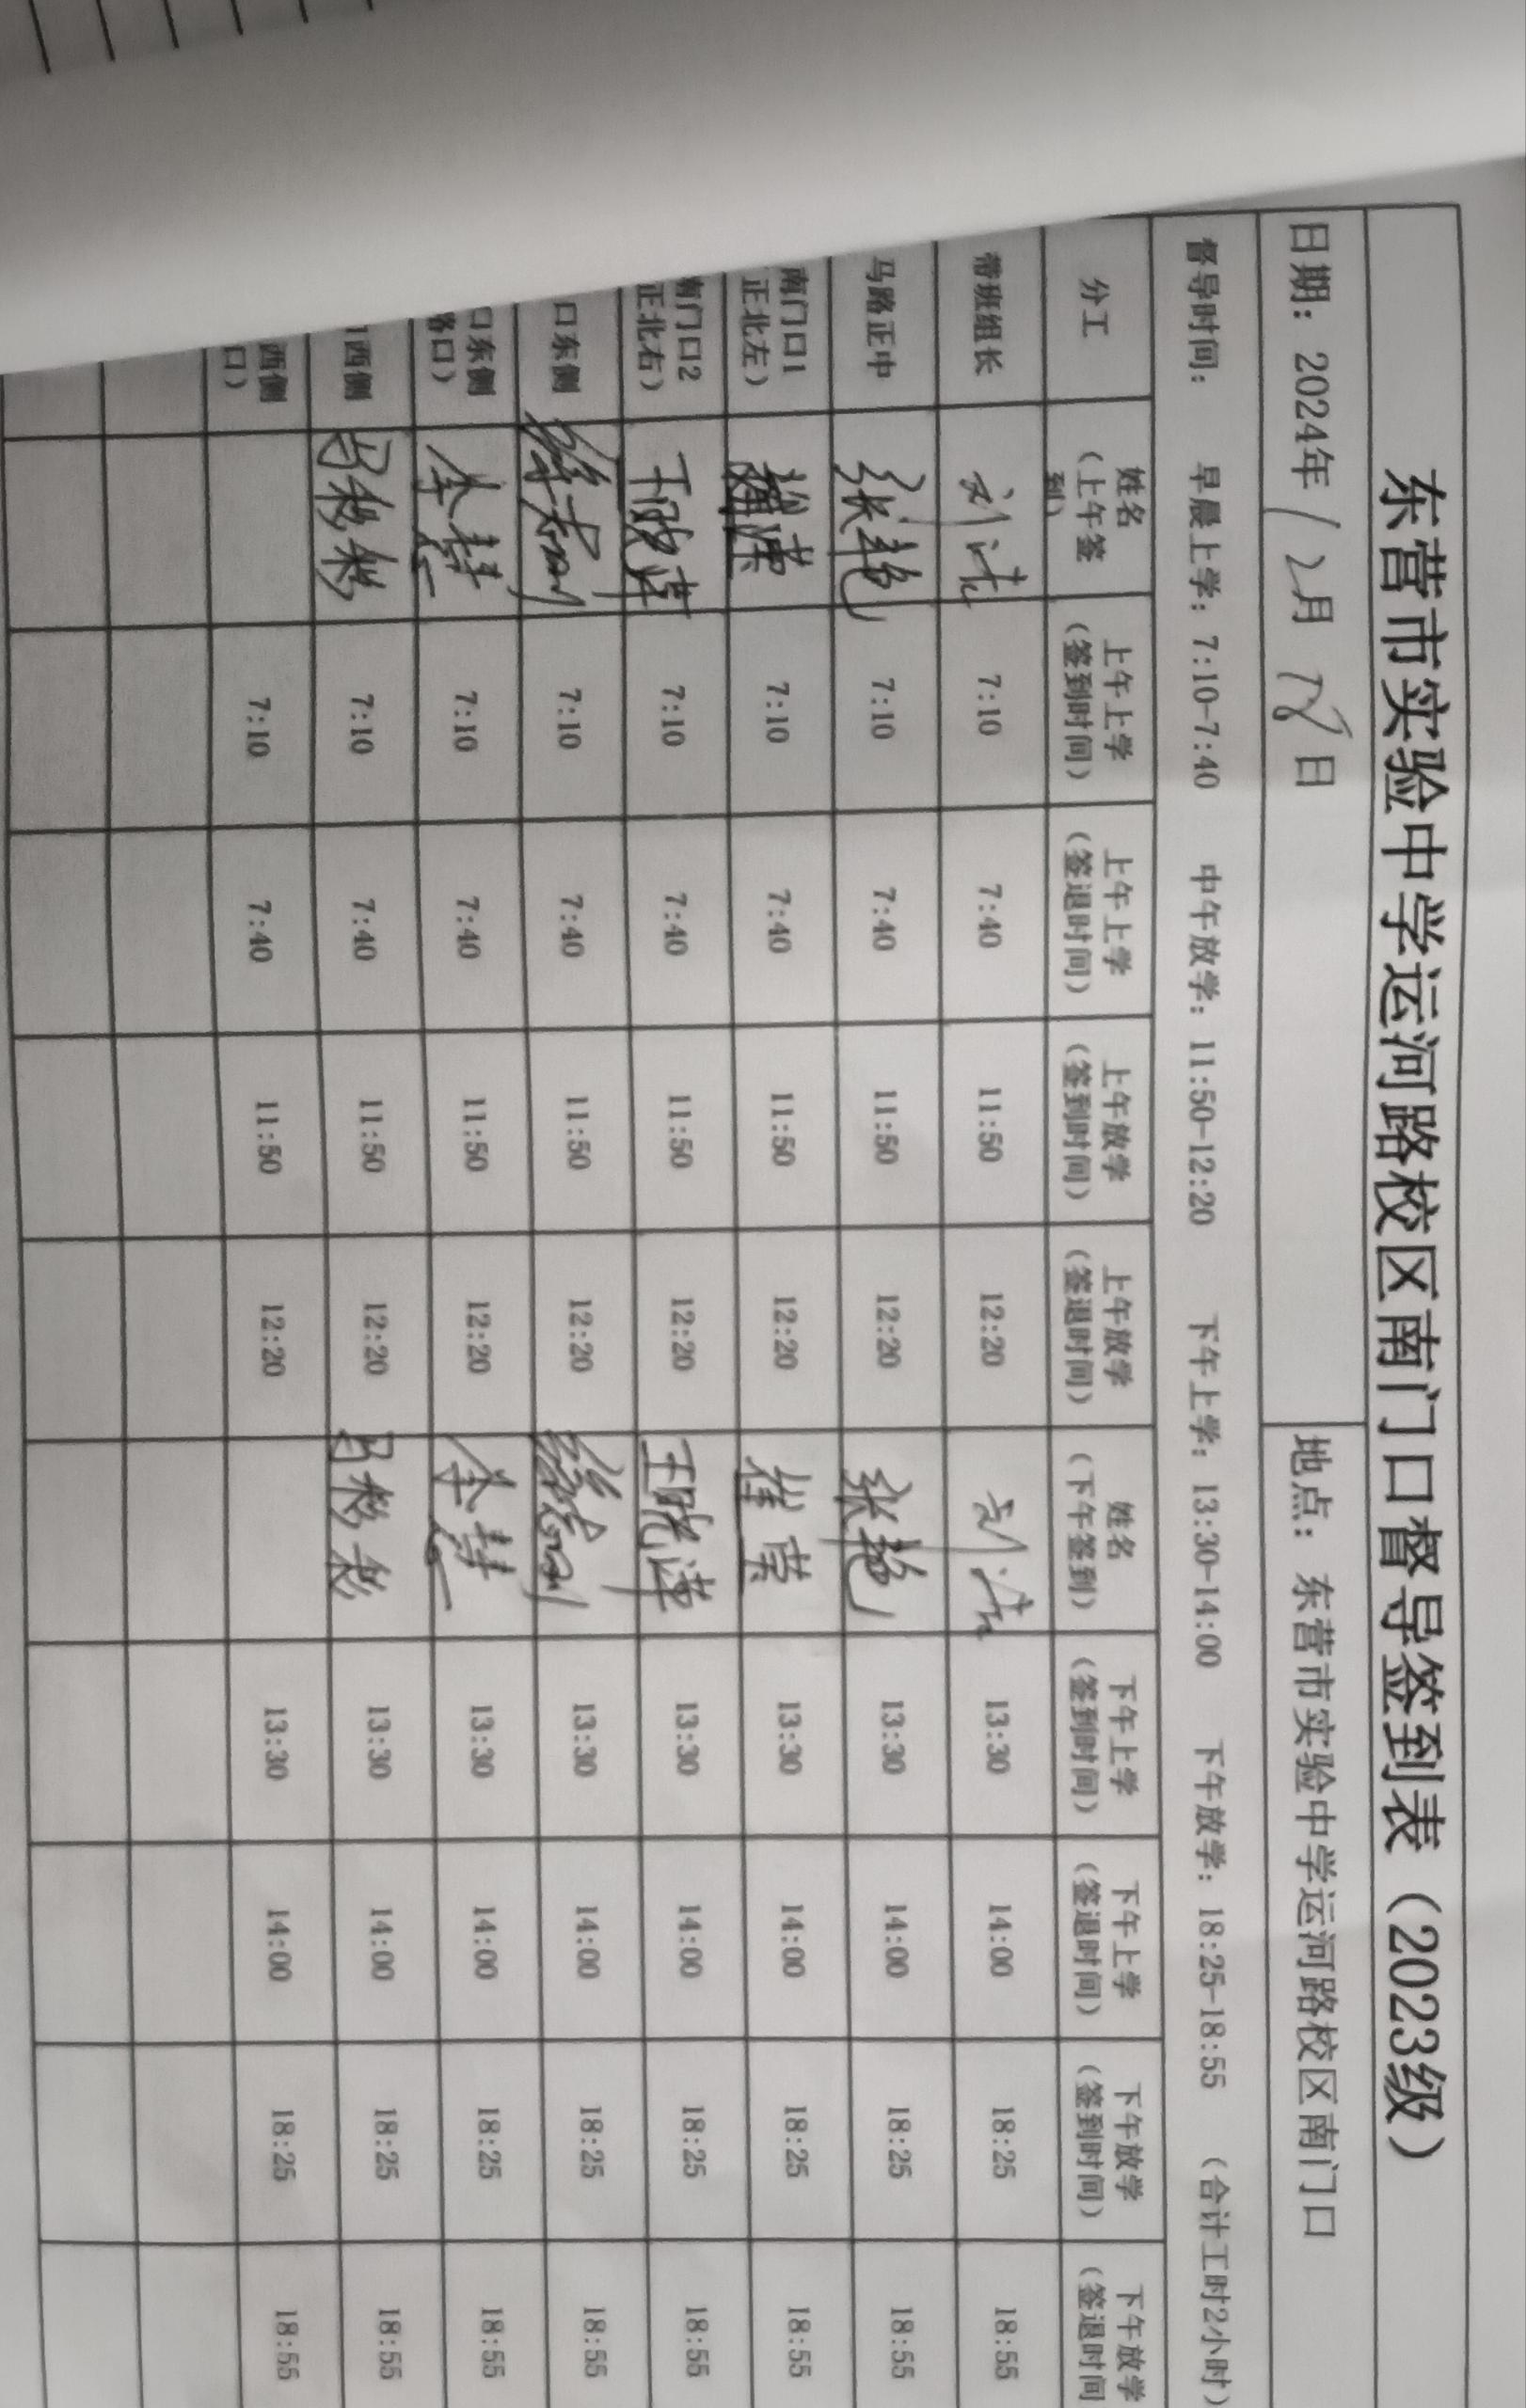 东营市实验中学运河路校区南门口督导签到表（2023级）
日期：2024年12月18日 地点：东营市实验中学运河路校区南门口
督导时间： 早晨上学：7:10-7:40 中午放学：11:50-12:20 下午上学：13:30-14:00 下午放学：18:25-18:55 （合计工时2小时）
分工 姓名（上午签到） 上午上学（签到时间） 上午上学（签退时间） 上午放学（签到时间） 上午放学（签退时间） 姓名（下午签到） 下午上学（签到时间） 下午上学（签退时间） 下午放学（签到时间） 下午放学（签退时间
带班组长 刘洁 7:10 7:40 11:50 12:20 刘洁 13:30 14:00 18:25 18:55
马路正中 张艳 7:10 7:40 11:50 12:20 张艳 13:30 14:00 18:25 18:55
南门口1 正北左） 7:10 7:40 11:50 12:20 13:30 14:00 18:25 18:55
南门口2 正北右） 7:10 7:40 11:50 12:20 13:30 14:00 18:25 18:55
口东侧 7:10 7:40 11:50 12:20 13:30 14:00 18:25 18:55
口东侧 路口） 李慧 7:10 7:40 11:50 12:20 李慧 13:30 14:00 18:25 18:55
西侧 7:10 7:40 11:50 12:20 13:30 14:00 18:25 18:55
西侧 口） 7:10 7:40 11:50 12:20 13:30 14:00 18:25 18:55